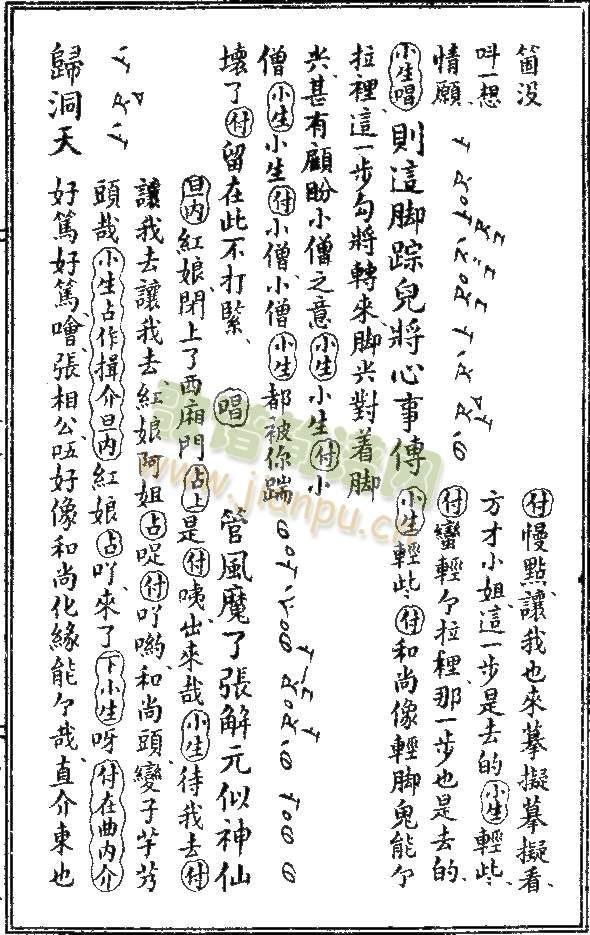 箇没 付慢點讓我也來摹擬摹擬看、
呌一想 方才小姐、這一步是去的、小生輕些、
情願、 付蠻輕个拉裡、那一步也是去的、
小生唱則這脚踪兒將心事傳 小生輕些、付和尚像輕脚鬼能个
拉裡、這一步勾將轉來、脚尖對着脚
尖、甚有顧盼小僧之意、小生小生付小
僧小生小生付小僧、小僧小生都被你踹
壞了付留在此不打緊、 唱 管風魔了張解元似神仙
旦内紅娘、閉上了西廂門占上是付咦、出來哉、小生待我去付
讓我去、讓我去、紅娘阿姐占啶付吖喲、和尚頭變子芋艿
頭哉小生占作揖介旦内紅娘占吖、來了下小生呀付在曲内介
歸洞天 好篤、好篤、噲、張相公、唔好像和尚化緣能个哉、直介東也
歌谱简谱网
www.jianpu.cn